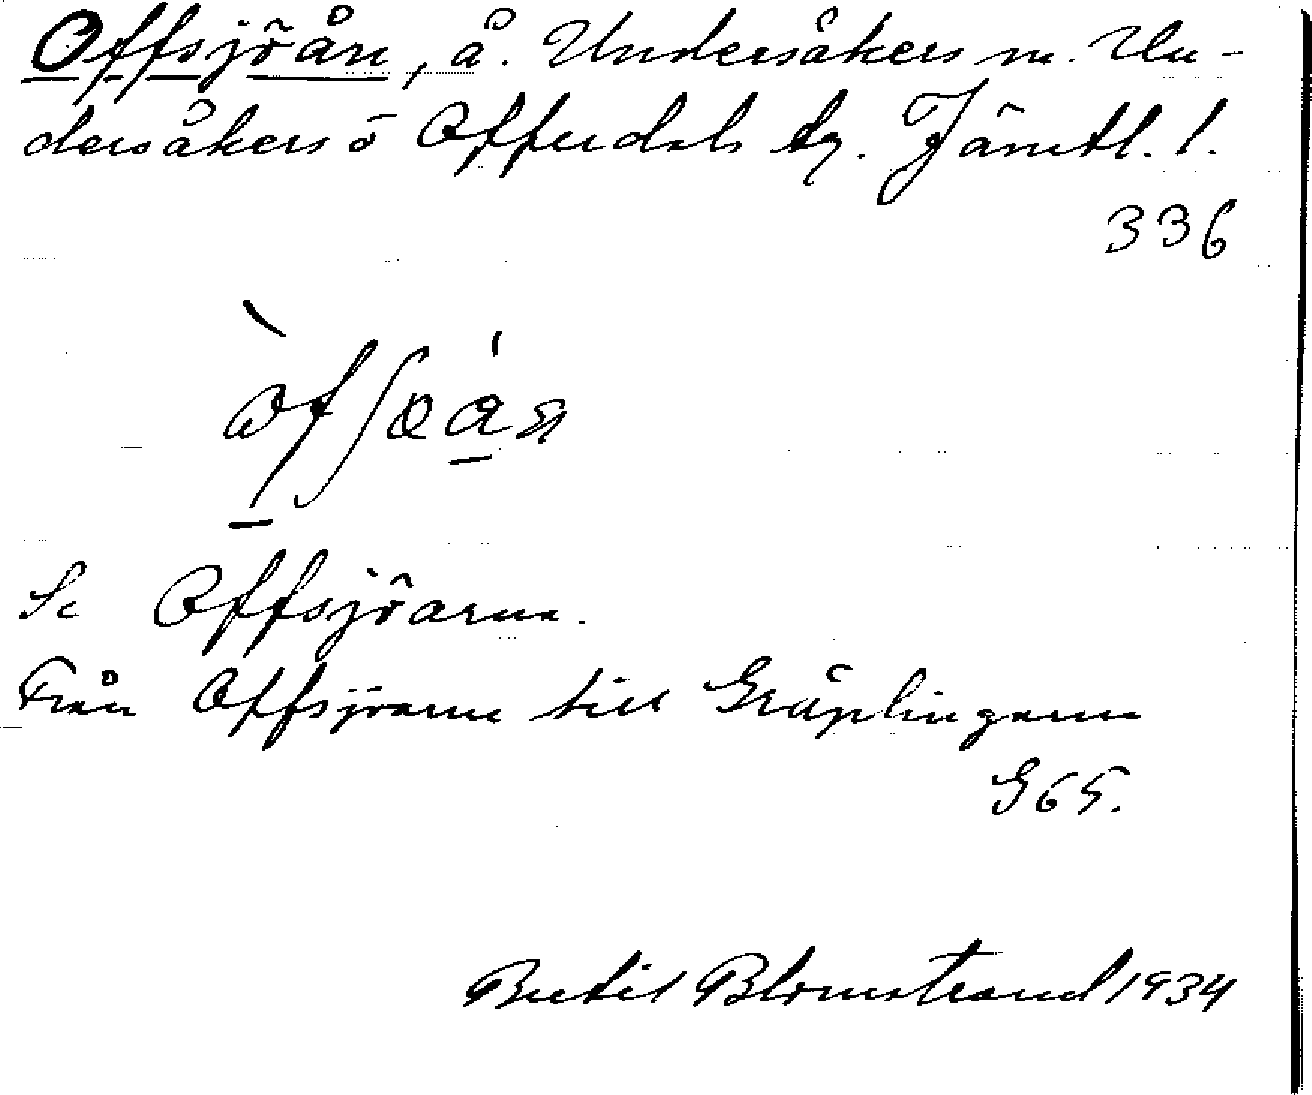 Offsjöån, å. Undersåkers sn. Un-
dersåkers o Offerdals tg. Jämtl. l.
336
Se Offsjöarna.
Från Offsjöarna till Gräplingarna
G65.
Bertil Blomstrand 1934